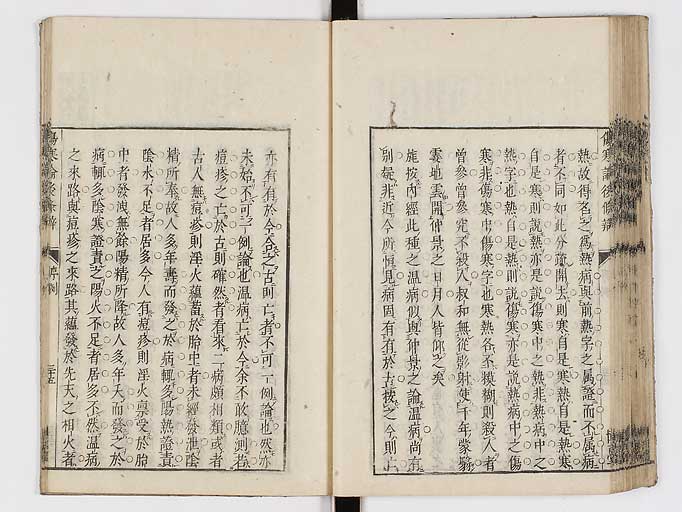 熱故得名之爲熱病與前熱字之屬證而不屬病
者不同如此分疏開去則寒自是寒熱自是熱寒
自是寒則說熱亦是說傷寒中之熱非熱病中之
熱字也熱自是熱則說傷寒亦是說熱病中之傷
寒非傷寒中傷寒字也寒熱各不糢糊則殺人者
曾參曾參定不殺人叔和無從影射使千年蒙翳
雲地雲開仲景之日月人皆仰之矣
能按內經此種之溫病似與仲景之論溫病尚有
別疑非近今所恒見病固有有於古後之今則亡
亦有有於今今之古則亡者不可一例論也然亦
未始不可一例論也溫病亡於今余不敢臆測若
痘疹之亡於古則確然者看來二病頗相類或者
古人無痘疹則淫火蘊蓄於胎中者未經發泄陰
精所奉故人多年壽而發之於病輒多陽熱證責
陰水不足者居多今人有痘疹則淫火禀受於胎
中者發洩無餘陽精所降故人多年夭而發之於
病輒多陰寒證責之陽火不足者居多不然溫病
之來路與痘疹之來路其蘊發於先天之相火者
傷寒論後條辨
序例
三十五